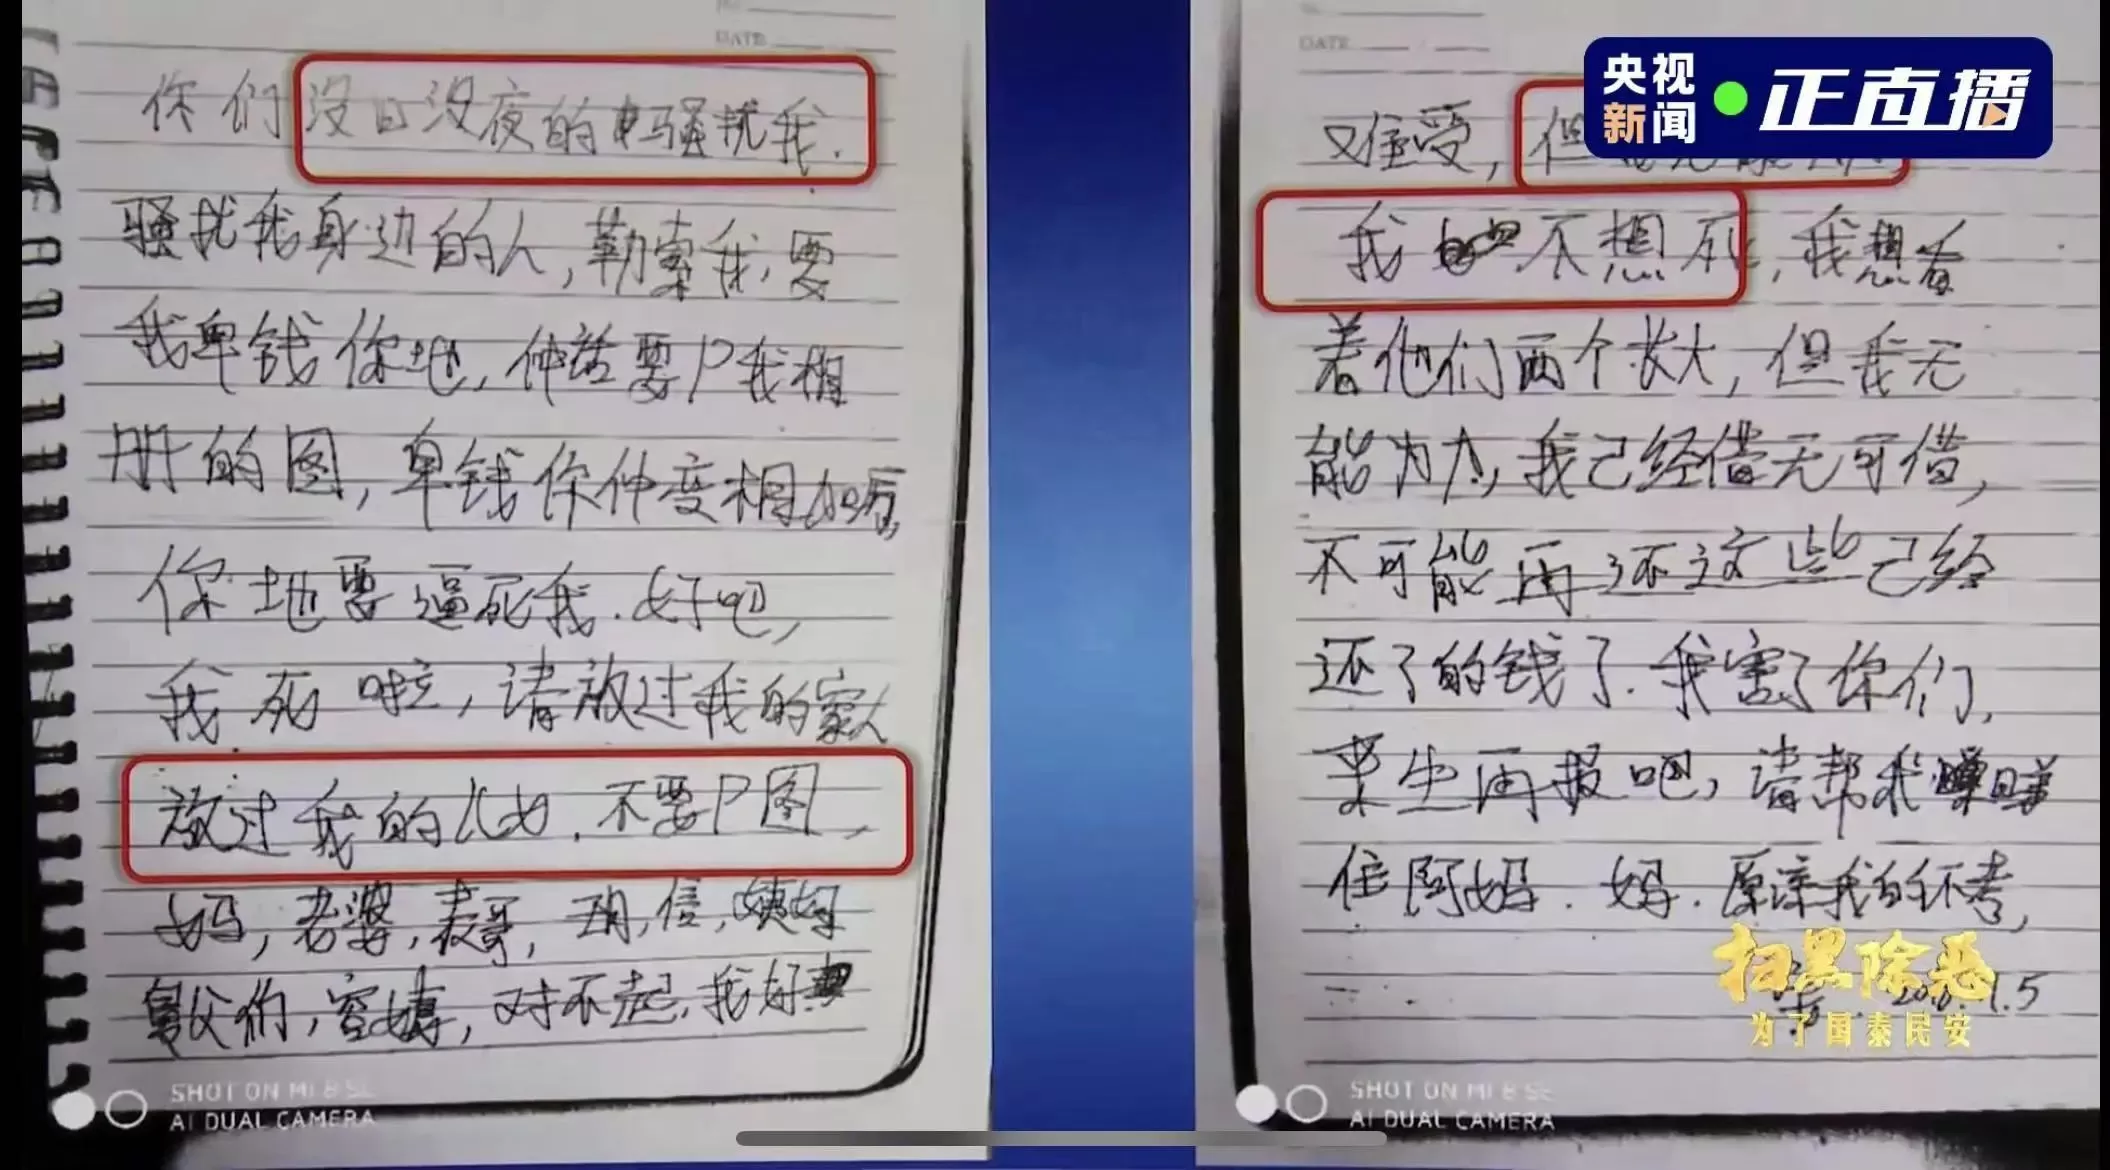 DATE
你们没日没夜的骚扰我.
骚扰我身边的人,勒索我,要
我卑钱你地,仲话要P我相
册的图,卑钱你仲变相加厉,
你地要逼死我.好吧,
我死啦,请放过我的家人
放过我的儿女.不要P图,
妈,老婆,表哥,信,姨妈
舅父们,对不起,我好
SHOT ON MI 8 SE
AI DUAL CAMERA
DATE
难受,但
我不想死,我想看
着他们两个长大,但我无
能为力,我己经借无可借,
不可能再还这些己经
还了的钱了.我害了你们,
来生再报吧,请帮我
住阿妈.妈.原谅我的不孝,
1.5
SHOT ON MI 8 SE
AI DUAL CAMERA
央视
新闻
正直播
扫黑除恶
为了国泰民安